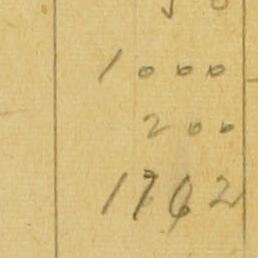 1000
200
1762